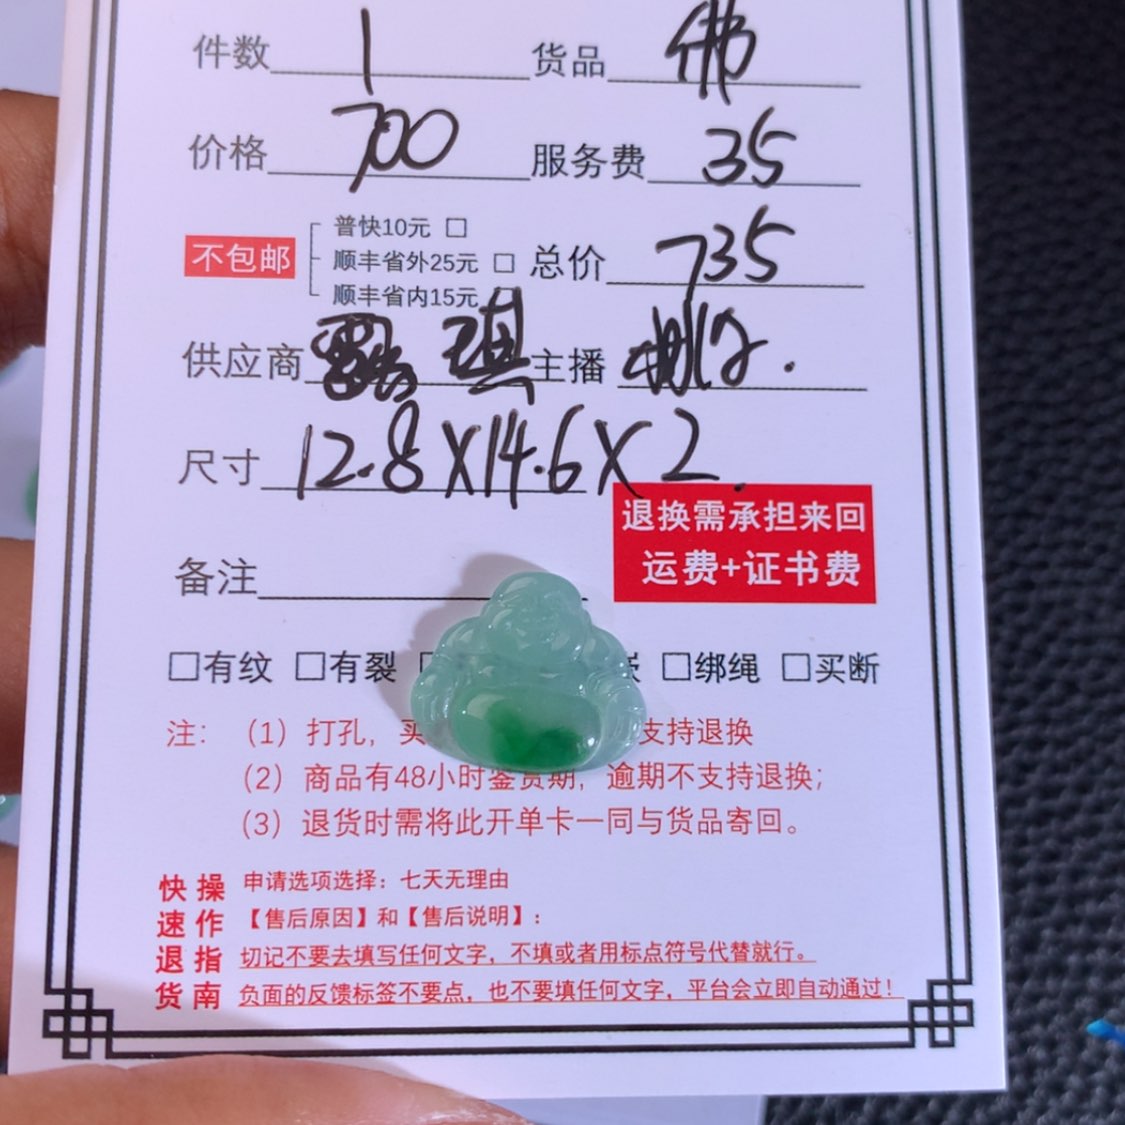 件数 1 货品 佛
价格 700 服务费 35
普快10元 □
不包邮 顺丰省外25元 □ 总价 735
顺丰省内15元
供应商 琪 主播
尺寸 12.8X14.6X2.
退换需承担来回
运费+证书费
备注
□有纹 □有裂 □绑绳 □买断
注: (1) 打孔, 买 支持退换
(2) 商品有48小时鉴赏期, 逾期不支持退换;
(3) 退货时需将此开单卡一同与货品寄回。
快操 申请选项选择: 七天无理由
速作 【售后原因】和【售后说明】:
退指 切记不要去填写任何文字, 不填或者用标点符号代替就行。
货南 负面的反馈标签不要点, 也不要填任何文字, 平台会立即自动通过!